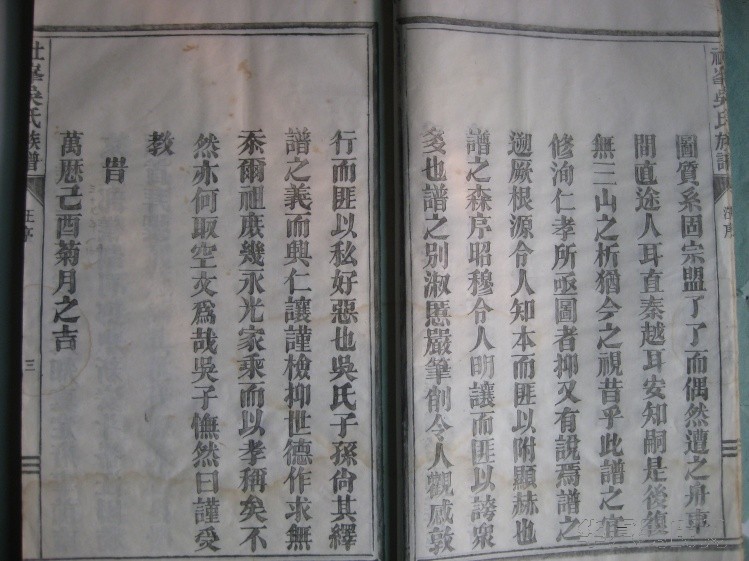 圖質系固宗盟了了而偶然遭之舟車
間直途人耳直秦越耳安知嗣是後復
無三山之析猶今之視昔乎此譜之宜
修洵仁孝所亟圖者抑又有說焉譜之
遡厥根源令人知本而匪以附顯赫也
譜之森序昭穆令人明讓而匪以謗衆
多也譜之别淑慝嚴筆削令人觀感敦
行而匪以私好惡也吳氏子孫尙其繹
譜之義而興仁讓謹檢抑世德作求無
忝爾祖庶幾永光家乘而以孝稱矣不
然亦何取空文爲哉吳子憮然曰謹受
教
旹
萬厯己酉菊月之吉
峯吳氏族譜
三
峯吳氏族譜